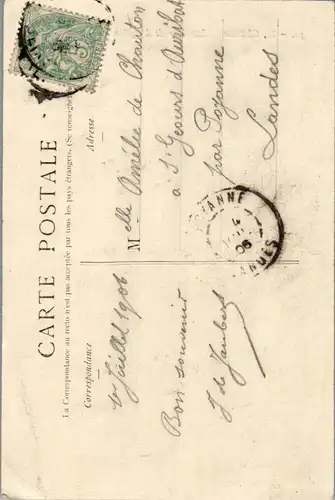 CARTE POSTALE
La Correspondance au recto n'est pas acceptée par tous les pays étrangers. (Se renseigner
Correspondance
Adresse
1er Juillet 1906
Bon souvenir
J de Jaubert
Melle Amélie de Chauton
à St Geours d'Auribat
par Poyanne
Landes
POYANNE
06
LANDES